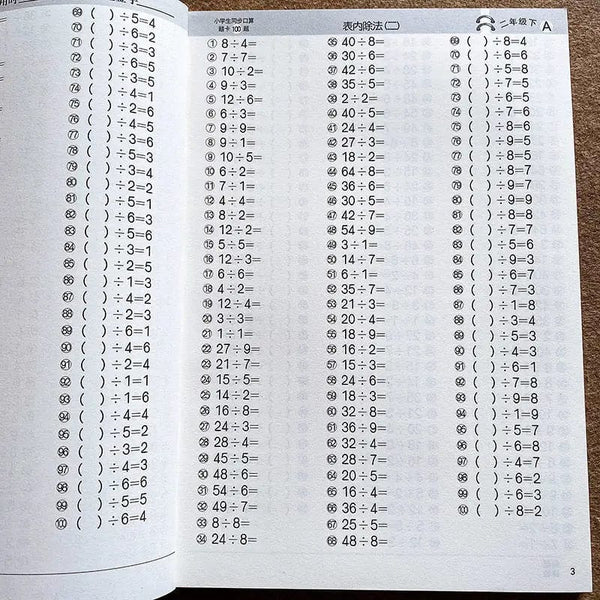 69 ( )÷5=4
70 ( )÷6=2
71 ( )÷3=2
72 ( )÷3=3
73 ( )÷6=5
74 ( )÷4=1
75 ( )÷2=6
76 ( )÷4=5
77 ( )÷3=6
78 ( )÷5=3
79 ( )÷3=4
80 ( )÷2=2
81 ( )÷5=1
82 ( )÷6=3
83 ( )÷5=6
84 ( )÷3=1
85 ( )÷2=5
86 ( )÷1=3
87 ( )÷4=2
88 ( )÷2=3
89 ( )÷6=1
90 ( )÷4=6
91 ( )÷2=4
92 ( )÷1=1
93 ( )÷1=6
94 ( )÷4=4
95 ( )÷5=2
96 ( )÷3=2
97 ( )÷4=3
98 ( )÷6=6
99 ( )÷5=5
100 ( )÷6=4
小学生同步口算
题卡100题
表内除法(二)
二年级下 A
① 8÷4=
② 7÷7=
③ 10÷2=
④ 9÷3=
⑤ 12÷6=
⑥ 6÷3=
⑦ 9÷9=
⑧ 9÷1=
⑨ 10÷5=
⑩ 6÷2=
⑪ 7÷1=
⑫ 4÷4=
⑬ 8÷2=
⑭ 12÷2=
⑮ 5÷5=
⑯ 12÷3=
⑰ 6÷6=
⑱ 4÷2=
⑲ 12÷4=
⑳ 2÷1=
㉑ 1÷1=
㉒ 27÷9=
㉓ 21÷7=
㉔ 15÷5=
㉕ 14÷2=
㉖ 16÷8=
㉗ 24÷3=
㉘ 28÷4=
㉙ 45÷5=
㉚ 48÷6=
㉛ 54÷6=
㉜ 49÷7=
㉝ 8÷8=
㉞ 24÷8=
㉟ 40÷8=
㊱ 30÷6=
㊲ 42÷6=
㊳ 35÷5=
㊴ 2÷2=
㊵ 40÷5=
㊶ 24÷4=
㊷ 27÷3=
㊸ 18÷2=
㊹ 64÷8=
㊺ 36÷6=
㊻ 30÷5=
㊼ 42÷7=
㊽ 54÷9=
㊾ 3÷1=
㊿ 15÷3=
51 6÷1=
52 35÷7=
53 21÷3=
54 20÷4=
55 18÷9=
56 16÷2=
57 15÷3=
58 24÷6=
59 18÷3=
60 36÷9=
61 20÷5=
62 32÷4=
63 28÷7=
64 20÷4=
65 16÷4=
66 36÷4=
67 25÷5=
68 48÷8=
69 ( )÷8=4
70 ( )÷9=5
71 ( )÷5=8
72 ( )÷7=5
73 ( )÷6=5
74 ( )÷7=6
75 ( )÷8=6
76 ( )÷9=6
77 ( )÷5=8
78 ( )÷7=9
79 ( )÷9=7
80 ( )÷9=9
81 ( )÷8=8
82 ( )÷7=7
83 ( )÷5=6
84 ( )÷9=3
85 ( )÷6=7
86 ( )÷7=3
87 ( )÷1=8
88 ( )÷3=4
89 ( )÷3=5
90 ( )÷4=3
91 ( )÷6=1
92 ( )÷7=8
93 ( )÷9=8
94 ( )÷1=9
95 ( )÷5=7
96 ( )÷6=8
97 ( )÷4=7
98 ( )÷6=2
99 ( )÷6=3
100 ( )÷8=2
3